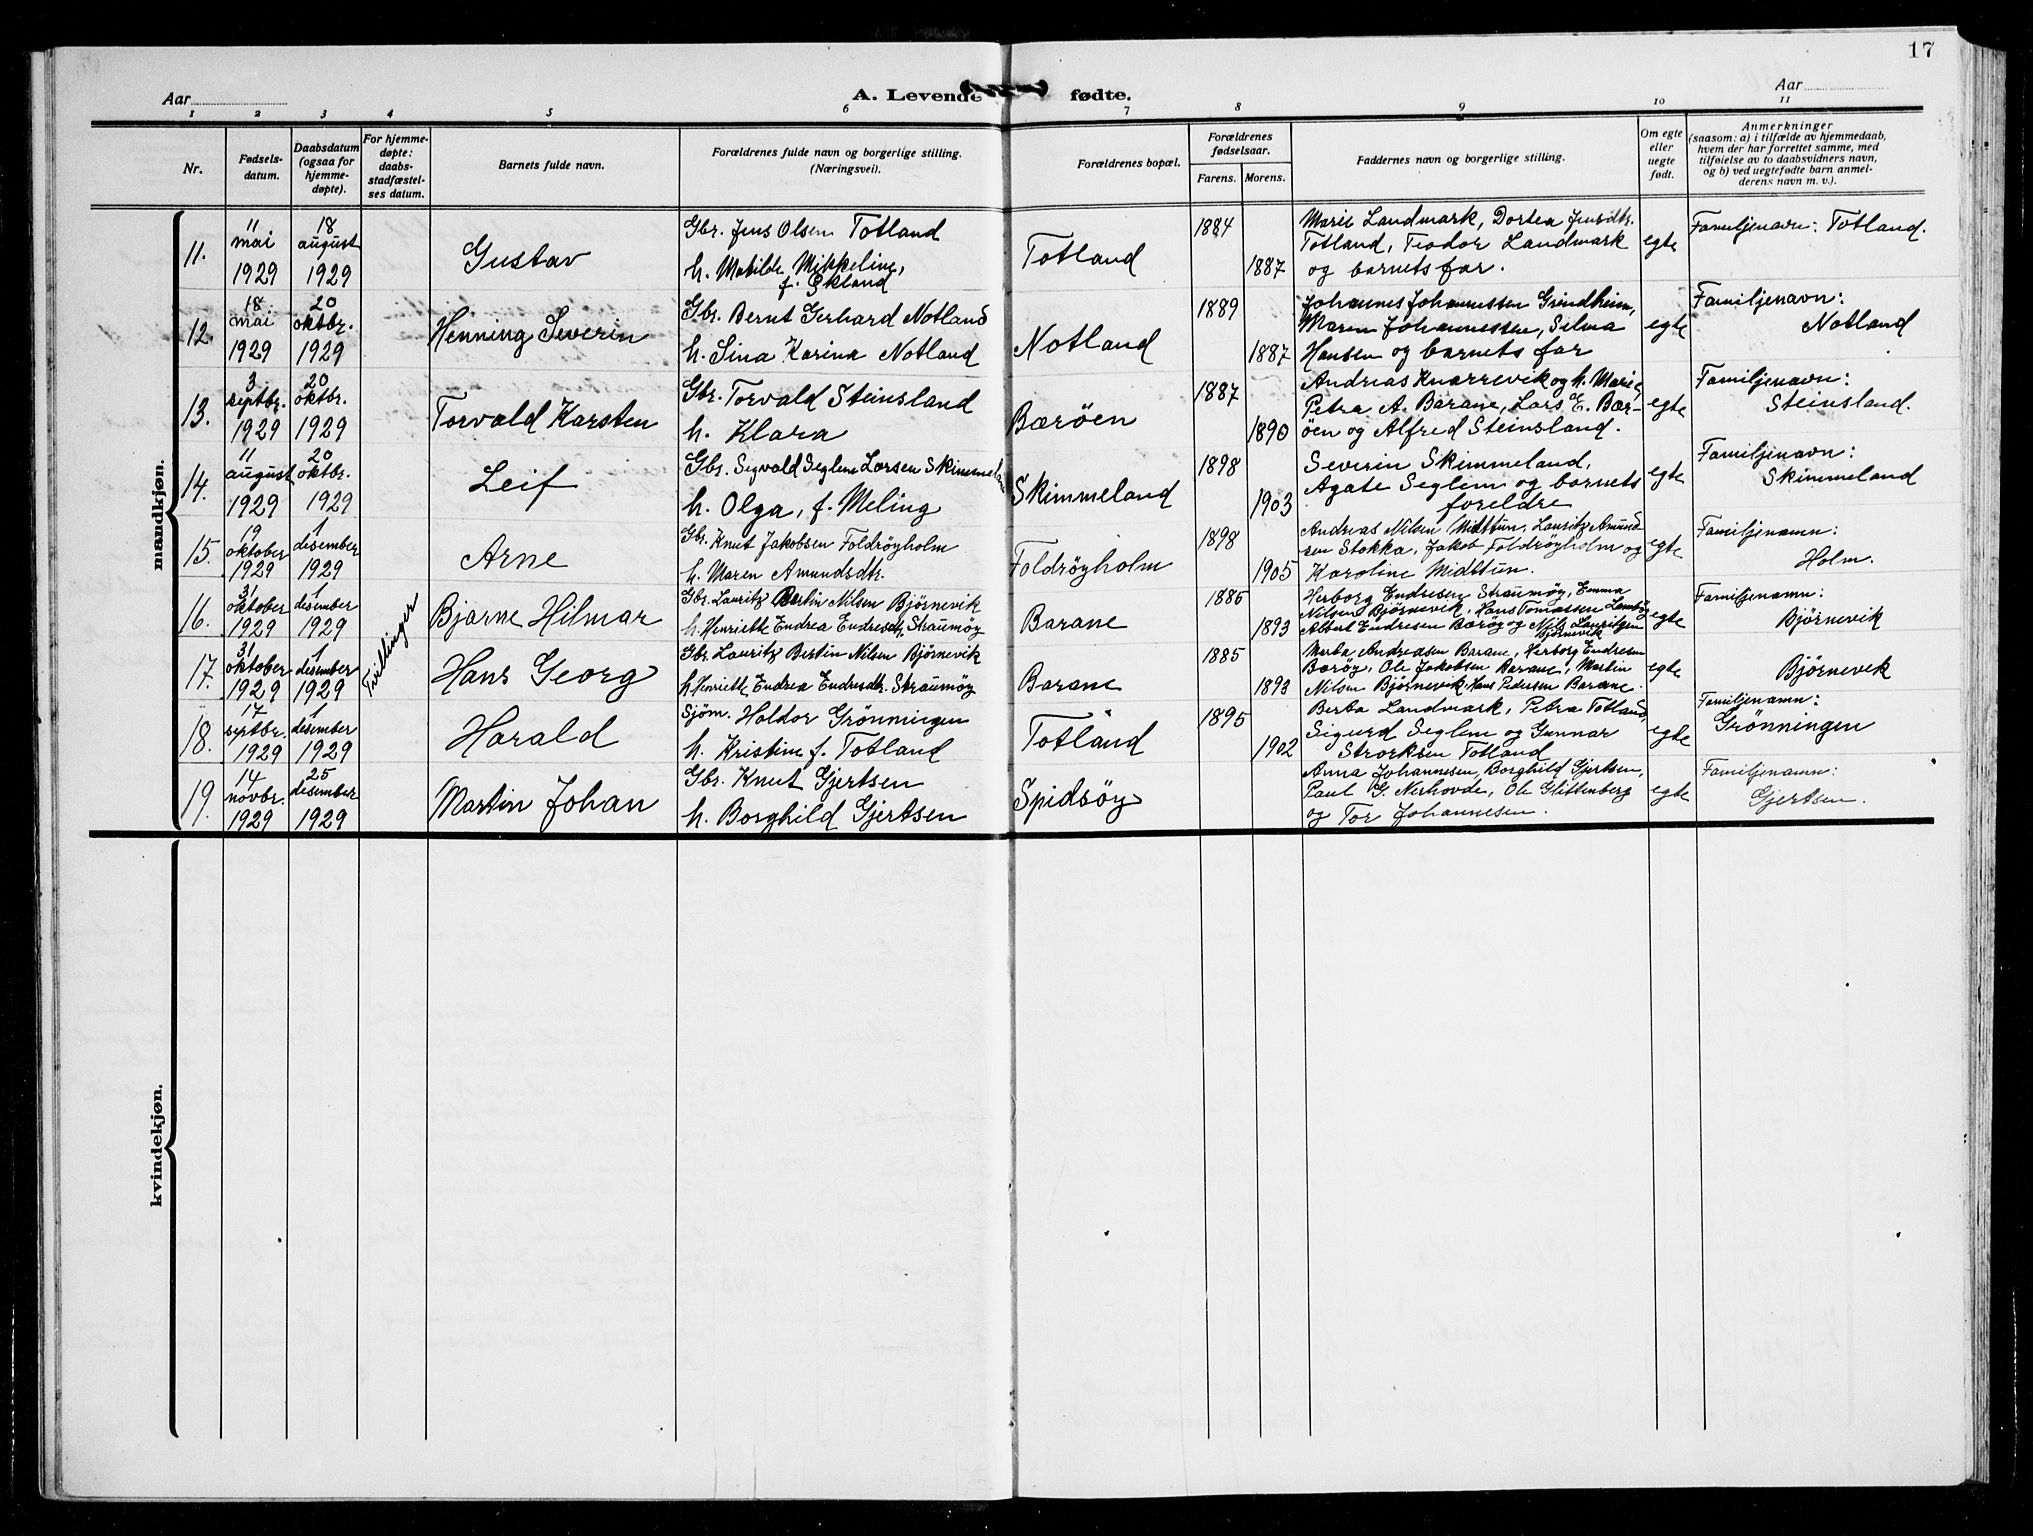 17
Aar
A. Levende fødte.
Aar
1 2 3 4 5 6 7 8 9 10 11
Nr.
Fødsels-
datum.
Daabsdatum
(ogsaa for
hjemme-
døpte).
For hjemme-
døpte:
daabs-
stadfæstel-
ses datum.
Barnets fulde navn.
Forældrenes fulde navn og borgerlige stilling.
(Næringsvei).
Forældrenes bopæl.
Forældrenes
fødselsaar.
Farens. Morens.
Faddernes navn og borgerlige stilling.
Om egte
eller
uegte
født.
Anmerkninger
(saasom: a) i tilfælde av hjemmedaab,
hvem der har forrettet samme, med
tilføielse av to daabsvidners navn,
og b) ved uegtefødte barn anmel-
derens navn m. v.).
mandkjøn.
11.
11
mai
1929
18
august
1929
Gustav
Gbr. Jens Olsen Totland
h. Matilde Mikkeline,
f. Økland
Totland
1884
1887
Marie Landmark, Dortea Jensdtr.
Totland, Teodor Landmark
og barnets far.
egte
Familjenavn: Totland.
12.
18
mai
1929
20
oktbr.
1929
Henning Severin
Gbr. Bernt Gerhard Notland
h. Sina Karina Notland
Notland
1889
1887
Johannes Johannessen Grindheim,
Maren Johannessen, Selma
Hansen og barnets far
egte
Familjenavn:
Notland
13.
3
septbr.
1929
20
oktbr.
1929
Torvald Karsten
Gbr. Torvald Steinsland
h. Klara
Bærøen
1887
1890
Andreas Knarrevik og h. Marie,
Petra A. Barane, Lars E. Bær-
öen og Alfred Steinsland.
egte
Familjenavn:
Steinsland.
14.
11
august
1929
20
oktbr.
1929
Leif
Gbr. Sigvald Seglem Larsen Skimmeland
h. Olga, f. Meling
Skimmeland
1898
1903
Severin Skimmeland,
Agate Seglem og barnets
foreldre
egte
Familjenavn:
Skimmeland
15.
19
oktober
1929
1
desember
1929
Arne
Gbr. Knut Jakobsen Foldröyholm
h. Maren Amundsdtr.
Foldröyholm
1898
1905
Andreas Nilsen Midttun, Lauritz Amund
sen Stokka, Jakob Foldröyholm og
Karoline Midttun.
egte
Familjenamn:
Holm.
16.
31
oktober
1929
1
desember
1929
Tvillinger
Bjarne Hilmar
Gbr. Lauritz Bertin Nilsen Björnevik
h. Henriette Endrea Endresdtr. Straumöy
Barane
1885
1893
Herborg Endresen Straumöy, Emma
Nilsen Björnevik, Hans Tomassen
Albert Endresen Bæröy og Nils Lauritzen
Björnevik
egte
Familjenamn:
Björnevik
17.
31
oktober
1929
1
desember
1929
Hans Georg
Gbr. Lauritz Bertin Nilsen Björnevik
h Henriette Endrea Endresdtr. Straumöy
Barane
1885
1893
Marta Andreasen Barane, Herborg Endresen
Bæröy, Ole Jakobsen Barane, Martin
Nilsen Björnevik, Hans Pedersen Barane.
egte
Björnevik
18.
17
septbr.
1929
1
desember
1929
Harald
Sjöm. Haldor Grönningen
h. Kristine f. Totland
Totland
1895
1902
Berta Landmark, Petra Totland,
Sigurd Seglem og Gunnar
Storksen Totland
egte
Familjenamn:
Grönningen
19.
14
novbr.
1929
25
desember
1929
Martin Johan
Gbr. Knut Gjertsen
h. Borghild Gjertsen
Spidsöy
Anna Johannesen, Borghild Gjertsen,
Paul G. Nerhovde, Ole Glittenberg
og Tor Johannesen.
egte
Familjenamn:
Gjertsen.
kvindekjøn.